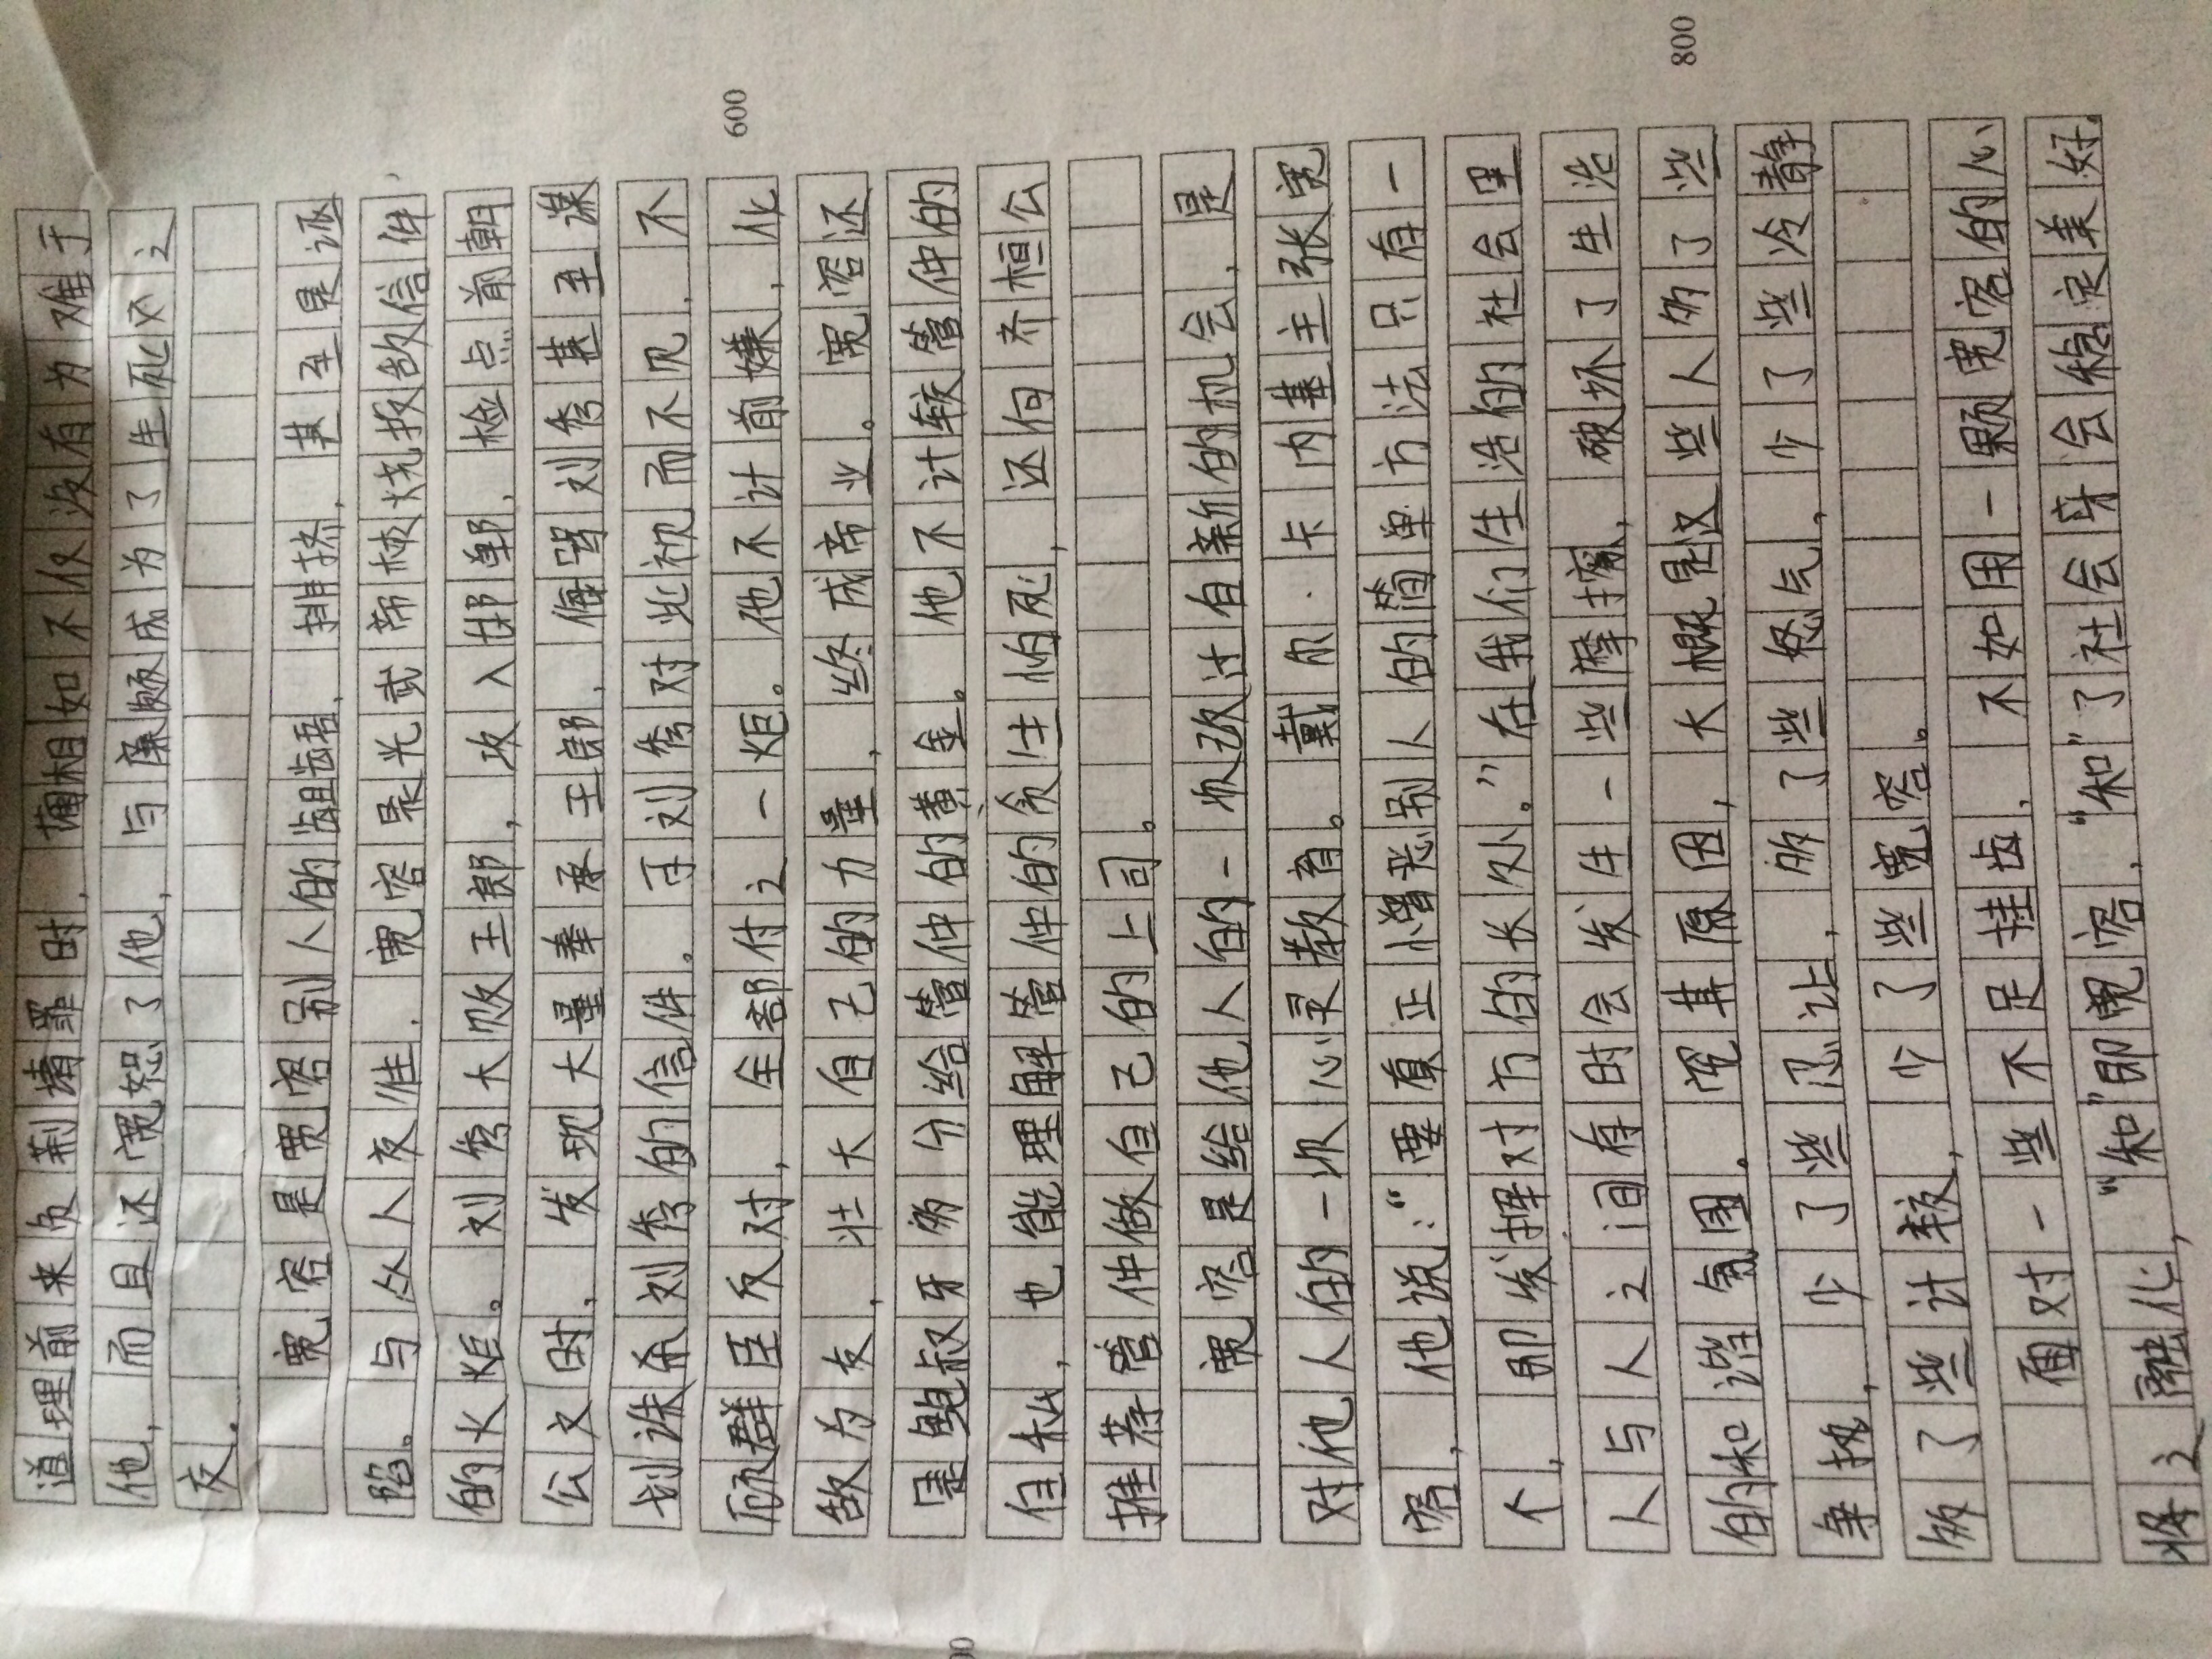 道理前来负荆请罪时，蔺相如不仅没有为难于
他，而且还宽恕了他，与廉颇成为了生死刎之
交。
宽容是宽容别人的龃龉、排挤，甚至是诬
陷。与丛人友准，宽容是光武帝梗烧报敌信件
的火炬。刘秀大败王郎，攻入邯郸，检点前朝
公文时，发现大量奉承王郎、侮骂刘秀甚至谋
划诛杀刘秀的信件。可刘秀对此视而不见，不
顾群臣反对，全部付之一炬。他不计前嫌，化
敌为友，壮大自己的力量，终成帝业。宽容还
是鲍叔牙多分给管仲的黄金。他不计较管仲的
自私，也能理解管仲的贪生怕死，还向齐桓公
推荐管仲做自己的上司。
宽容是给他人的一次改过自新的机会，是
对他人的一次心灵教育。戴尔·卡内基主张宽
容，他说：“要真正憎恶别人的简单方法只有一
个，即发挥对方的长处。”在我们生活的社会里
人与人之间有时会发生一些摩擦，破坏了生活
的和谐氛围。究其原因，大概是这些人多了些
争执，少了些忍让，多了些怒气，少了些冷静
多了些计较，少了些宽容。
面对一些不足挂齿，不如用一颗宽容的心
将之融化，“和”即宽容，“和”了社会身会稳定美好.
600
800
00